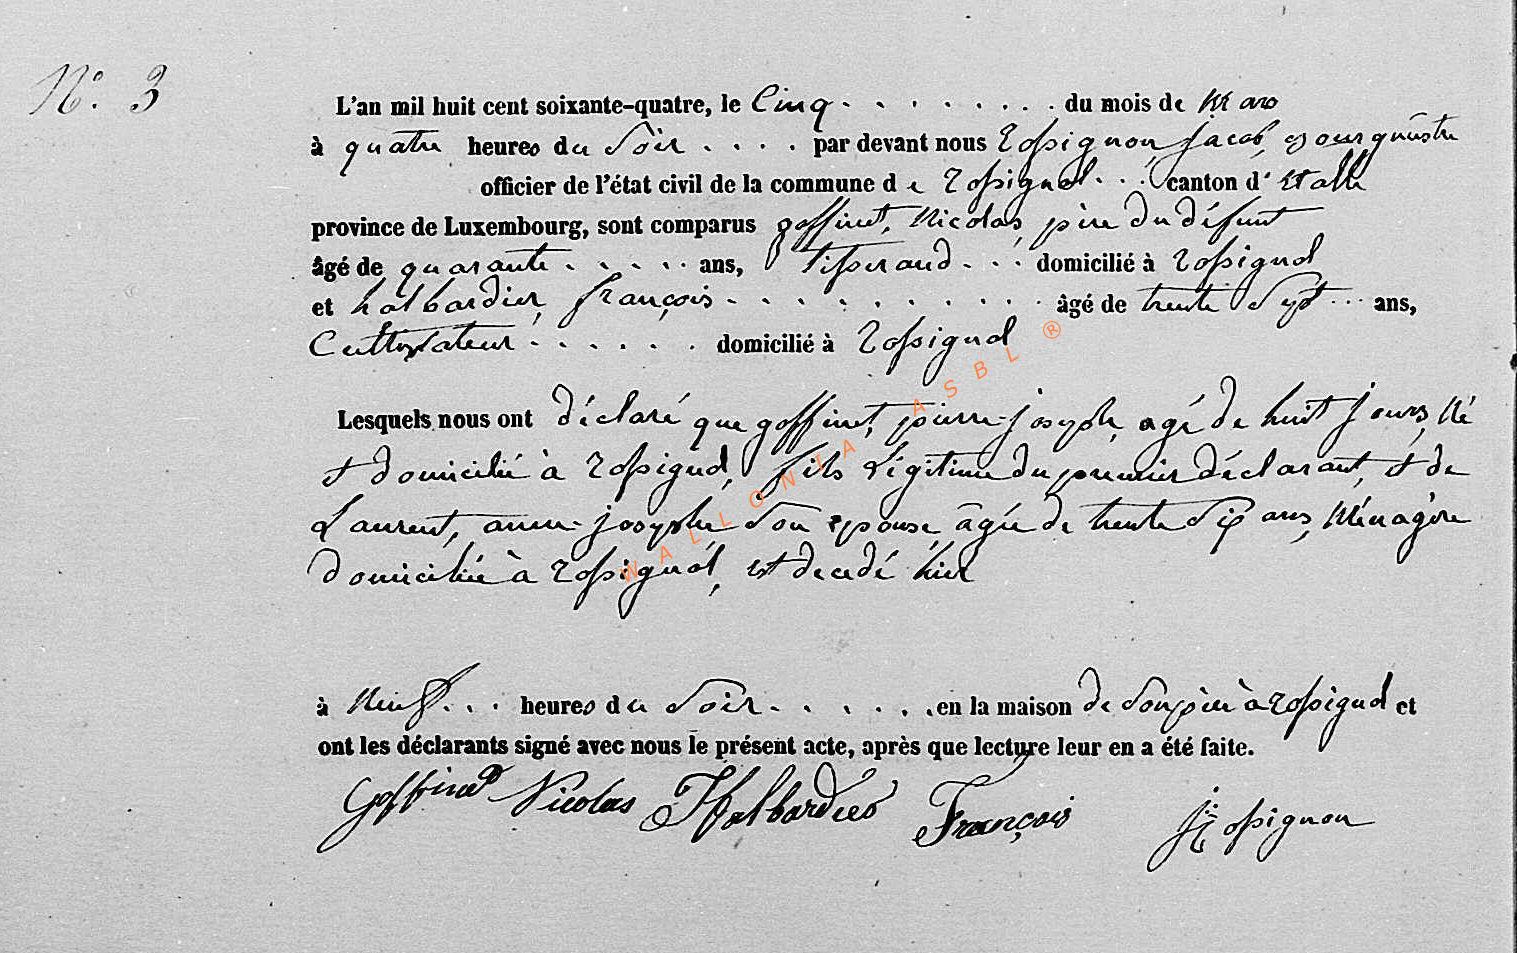 N° 3
L'an mil huit cent soixante-quatre, le Cinq . . . . . . . . . du mois de Mars
à quatre heures du Soir . . . . par devant nous Rossignon, Jacob, Bourgmestre
officier de l'état civil de la commune de Rossignol . . . canton d'Etalle
province de Luxembourg, sont comparus goffinet, Nicolas, père du défunt
âgé de quarante . . . . . ans, Tisserand . . . domicilié à Rossignol
et halbardier, françois . . . . . . . . . . . âgé de trente Sept . . . ans,
Cultivateur . . . . . . domicilié à Rossignol
Lesquels nous ont déclaré que goffinet, pierre-joseph, agé de huit jours, Né
et domicilié à Rossignol, fils Légitime du premier déclarant, et de
Laurent, anne-josephe Son epouse âgée de trente Six ans, Ménagère
domiciliée à Rossignol, est decedé hier
à Neuf . . . heures du Soir . . . . . . en la maison de Son père à Rossignol et
ont les déclarants signé avec nous le présent acte, après que lecture leur en a été faite.
Goffinet Nicolas Halbardier François J Rossignon
WALLONIA ASBL ®